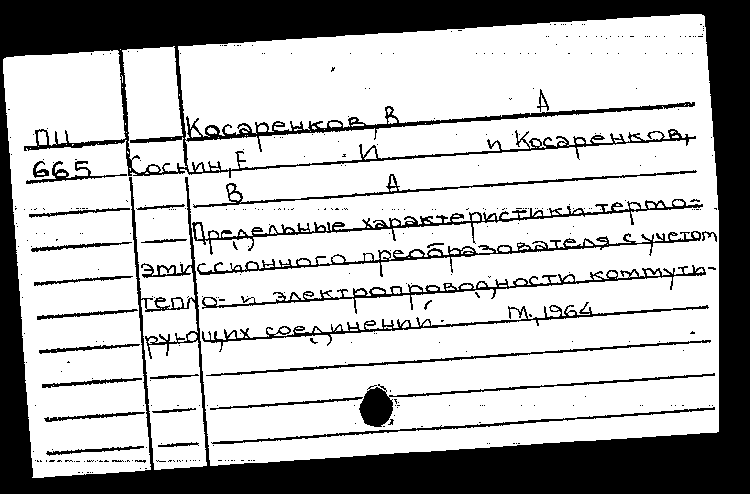 Косаренков, В А
ПЦ
665 Соснин, Е И и Косаренков,
В А
Предельные характеристики термо=
эмиссионного преобразователя с учетом
тепло- и электропроводности коммути-
рующих соединений. М., 1964